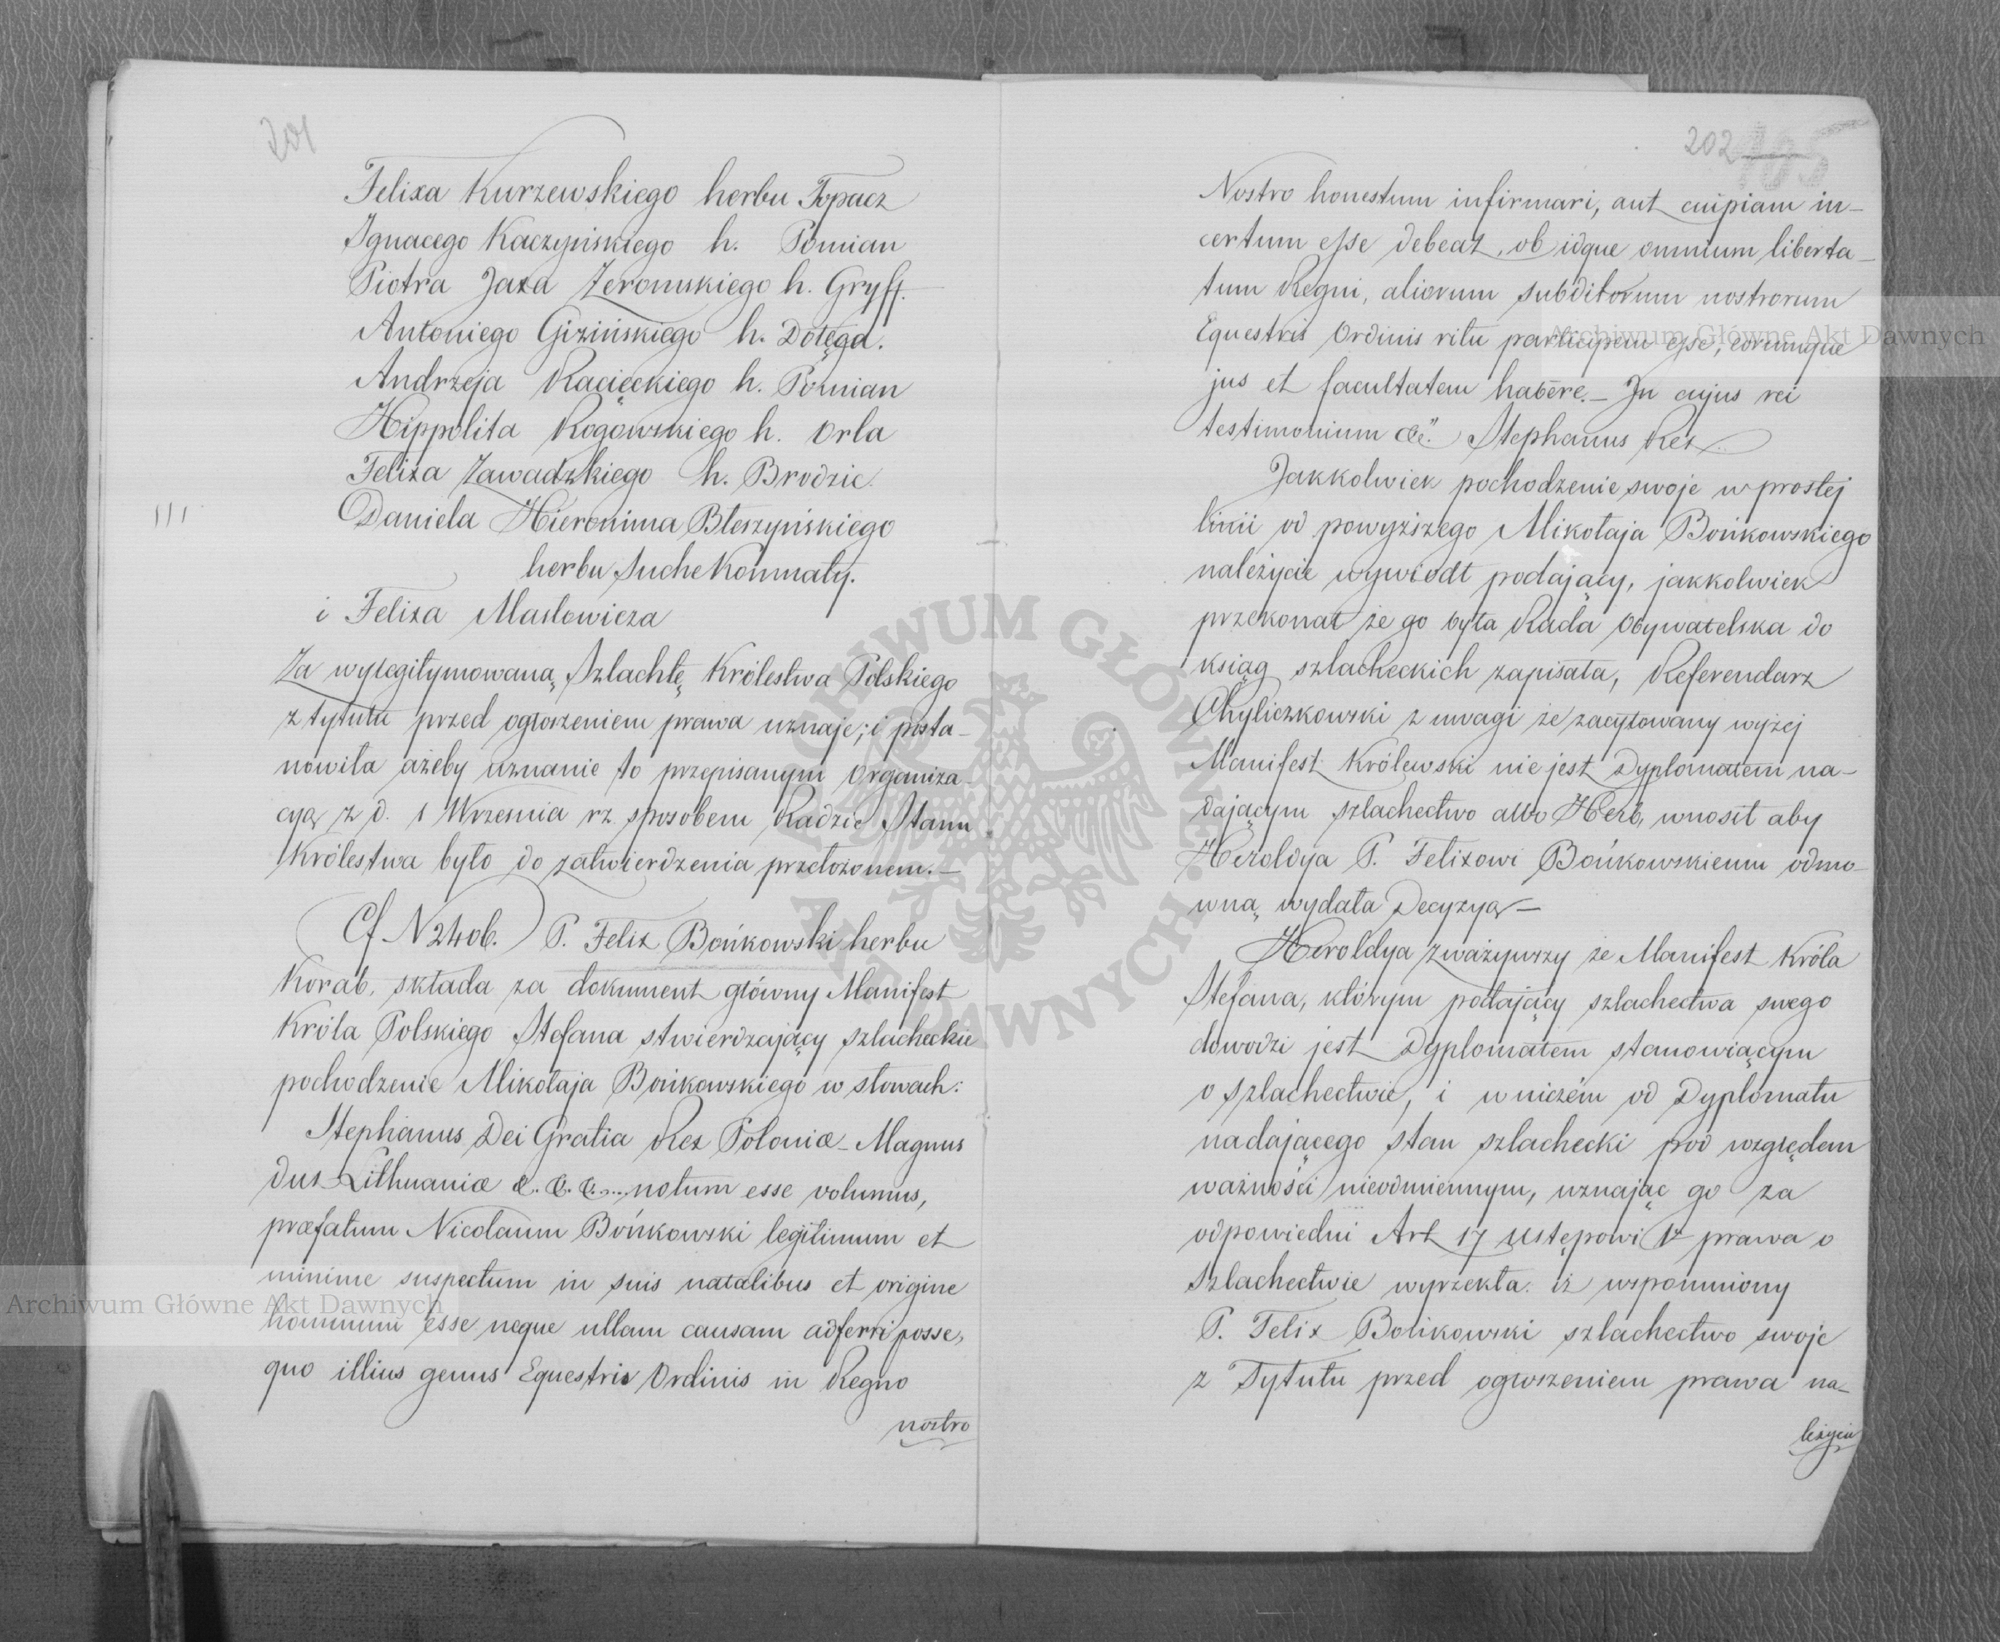 201
Felixa Kurzewskiego herbu Topacz
Ignacego Kaczyńskiego h. Pomian
Piotra Jaxa Żeromskiego h. Gryff.
Antoniego Gizińskiego h. Dołęga.
Andrzeja Racięckiego h. Pomian
Hippolita Rogowskiego h. Orla
Felixa Zawadzkiego h. Brodzic.
Daniela Hieronima Bleszyńskiego
herbu Suchekomnaty.
i Felixa Masłowicza
Za wylegitymowaną Szlachtę Królestwa Polskiego
z tytułu przed ogłoszeniem prawa uznaje; i posta-
nowiła ażeby uznanie to przepisanym Organiza-
cyą z d. 1 Września rz sposobem Radzie Stanu
Królestwa było do zatwierdzenia przełożonem.—
Cf N 2406.) P. Felix Bońkowski herbu
Korab. składa za dokument główny Manifest
Króla Polskiego Stefana stwierdzający szlacheckie
pochodzenie Mikołaja Bońkowskiego w słowach:
Stephanus Dei Gratia Rex Poloniæ Magnus
dux Lithuaniæ &. &. &.... notum esse volumus,
præfatum Nicolaum Bońkowski legitimum et
minime suspectum in suis natalibus et origine
hominum esse neque ullam causam adferri posse,
quo illius genus Equestris Ordinis in Regno
nostro
202 105
Nostro honestum infirmari, aut cuipiam in-
certum esse debeat, ob idque omnium liberta-
tum Regni, aliorum subditorum nostrorum
Equestris Ordinis ritu participem esse, eorumque
jus et facultatem habere.— In cujus rei
testimonium &c". Stephanus Rex.
Jakkolwiek pochodzenie swoje w prostej
linii od powyższego Mikołaja Bońkowskiego
należycie wywiódł podający, jakkolwiek
przekonał że go była Rada Obywatelska do
ksiąg szlacheckich zapisała, Referendarz
Chyliczkowski z uwagi że zacytowany wyżej
Manifest Królewski nie jest Dyplomatem na-
dającym szlachectwo albo Herb, wnosił aby
Heroldya P. Felixowi Bońkowskiemu odmo-
wną wydała Decyzyą—
Heroldya zważywszy że Manifest Króla
Stefana, którym podający szlachectwa swego
dowodzi jest Dyplomatem stanowiącym
o szlachectwie, i w niczém od Dyplomatu
nadającego stan szlachecki pod względem
ważności nieodmiennym, uznając go za
odpowiedni Art 17 Ustępowi 1t prawa o
Szlachectwie wyrzekła. iż wspomniony
P. Felix Bońkowski szlachectwo swoje
z Tytułu przed ogłoszeniem prawa na-
leżycie
Archiwum Główne Akt Dawnych
Archiwum Główne Akt Dawnych
ARCHIWUM GŁÓWNE AKT DAWNYCH